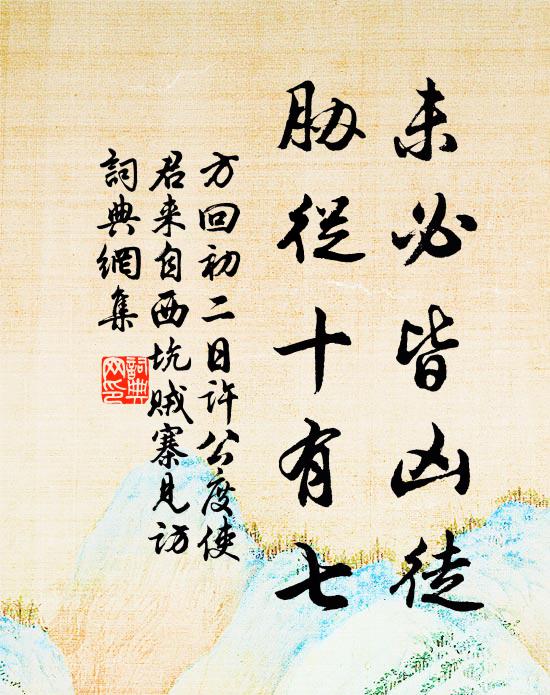 未必皆凶徒
胁從十有七
方回初二日许公度使
君来自西坑贼寨见访
詞典網集
詞典
网印